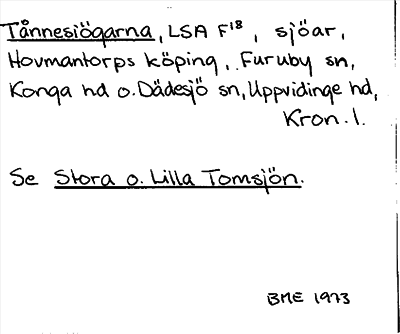 Tånnesiögarna, LSA F18, sjöar,
Hovmantorps köping, Furuby sn,
Konga hd o. Dädesjö sn, Uppvidinge hd,
Kron. l.
Se Stora o. Lilla Tomsjön.
BME 1973